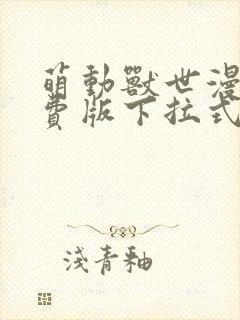 萌動獸世漫
費版下拉式
淺青釉